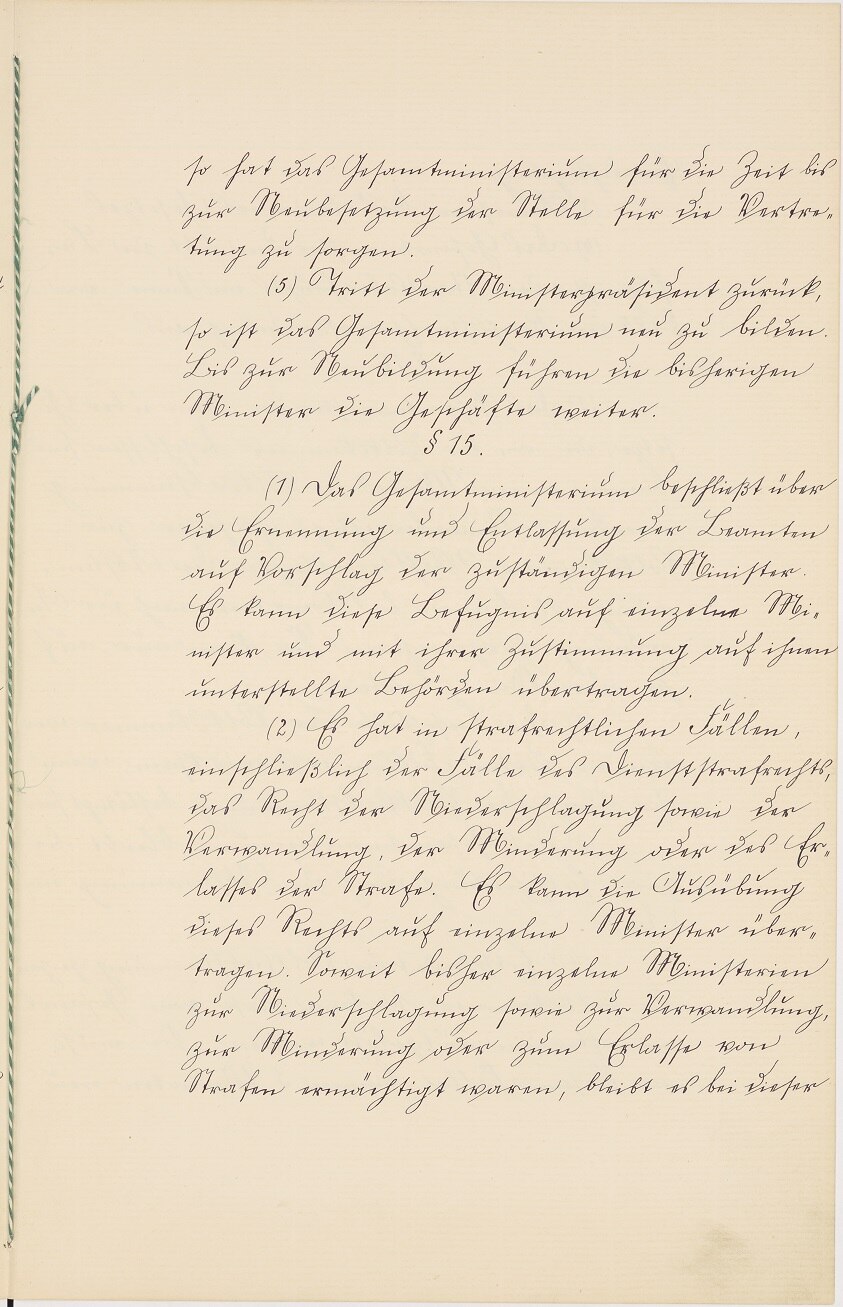 so hat das Gesamtministerium für die Zeit bis
zur Neubesetzung der Stelle für die Vertre-
tung zu sorgen.
(5) Tritt der Ministerpräsident zurück,
so ist das Gesamtministerium neu zu bilden.
Bis zur Neubildung führen die bisherigen
Minister die Geschäfte weiter.
§ 15.
(1) Das Gesamtministerium beschließt über
die Ernennung und Entlassung der Beamten
auf Vorschlag der zuständigen Minister.
Es kann diese Befugnis auf einzelne Mi-
nister und mit ihrer Zustimmung auf ihnen
unterstellte Behörden übertragen.
(2) Es hat in strafrechtlichen Fällen,
einschließlich der Fälle des Dienststrafrechts,
das Recht der Niederschlagung sowie der
Verwandlung, der Minderung oder des Er-
lasses der Strafe. Es kann die Ausübung
dieses Rechts auf einzelne Minister über-
tragen. Soweit bisher einzelne Ministerien
zur Niederschlagung sowie zur Verwandlung,
zur Minderung oder zum Erlasse von
Strafen ermächtigt waren, bleibt es bei dieser